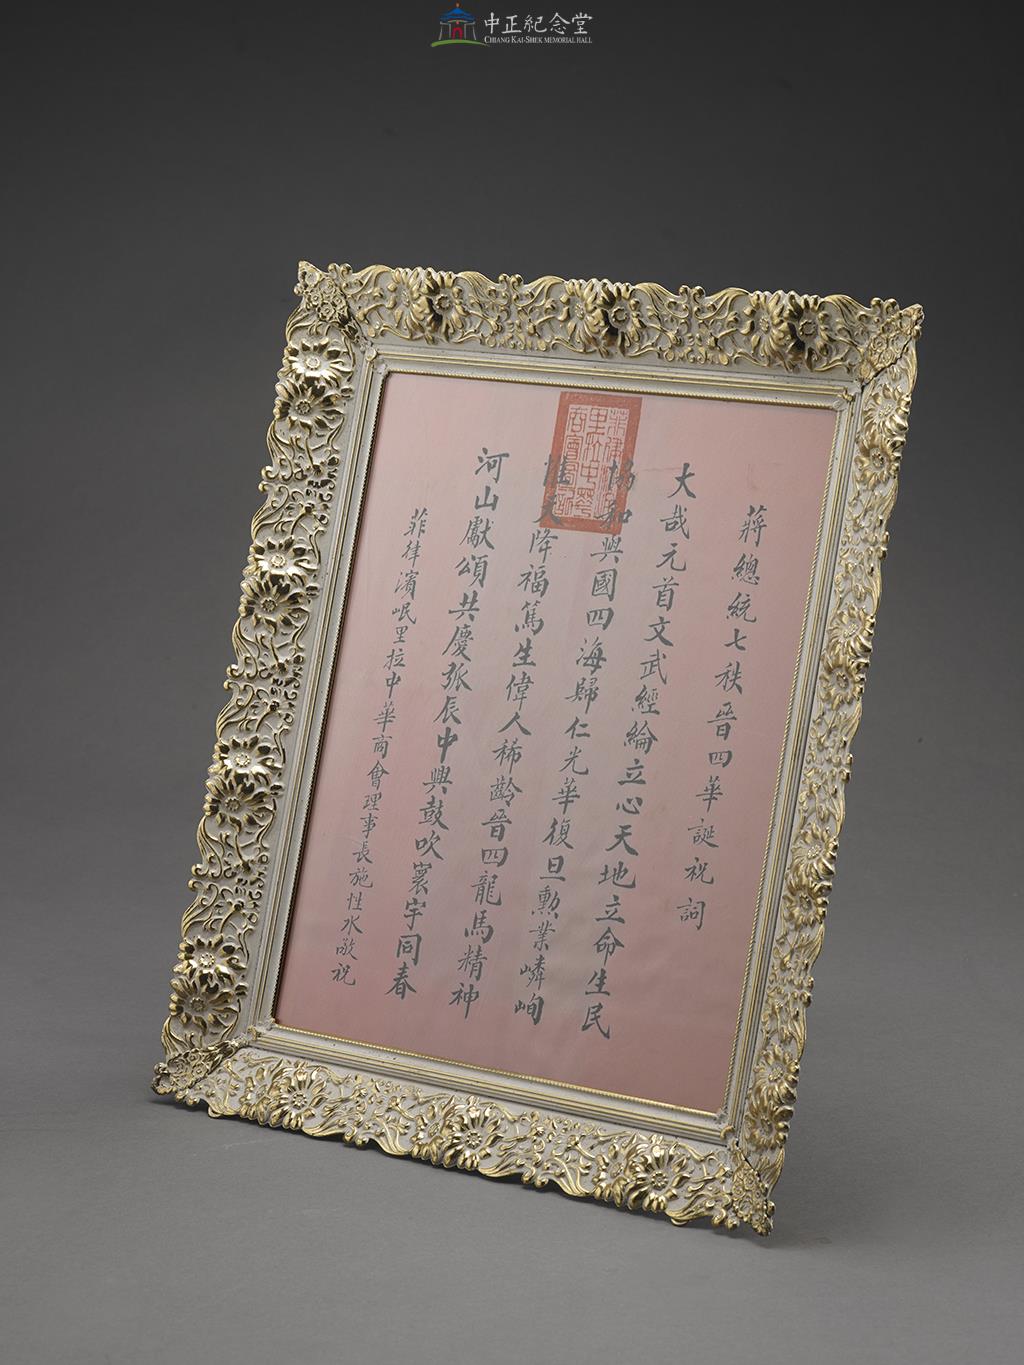 中正紀念堂
CHIANG KAI-SHEK MEMORIAL HALL
蔣總統七秩晉四華誕祝詞
大哉元首文武經綸立心天地立命生民
協和興國四海歸仁光華復旦勲業嶙峋
維天降福篤生偉人稀齡晉四龍馬精神
河山獻頌共慶弧辰中興鼓吹寰宇同春
菲律濱岷里拉中華商會理事長施性水敬祝